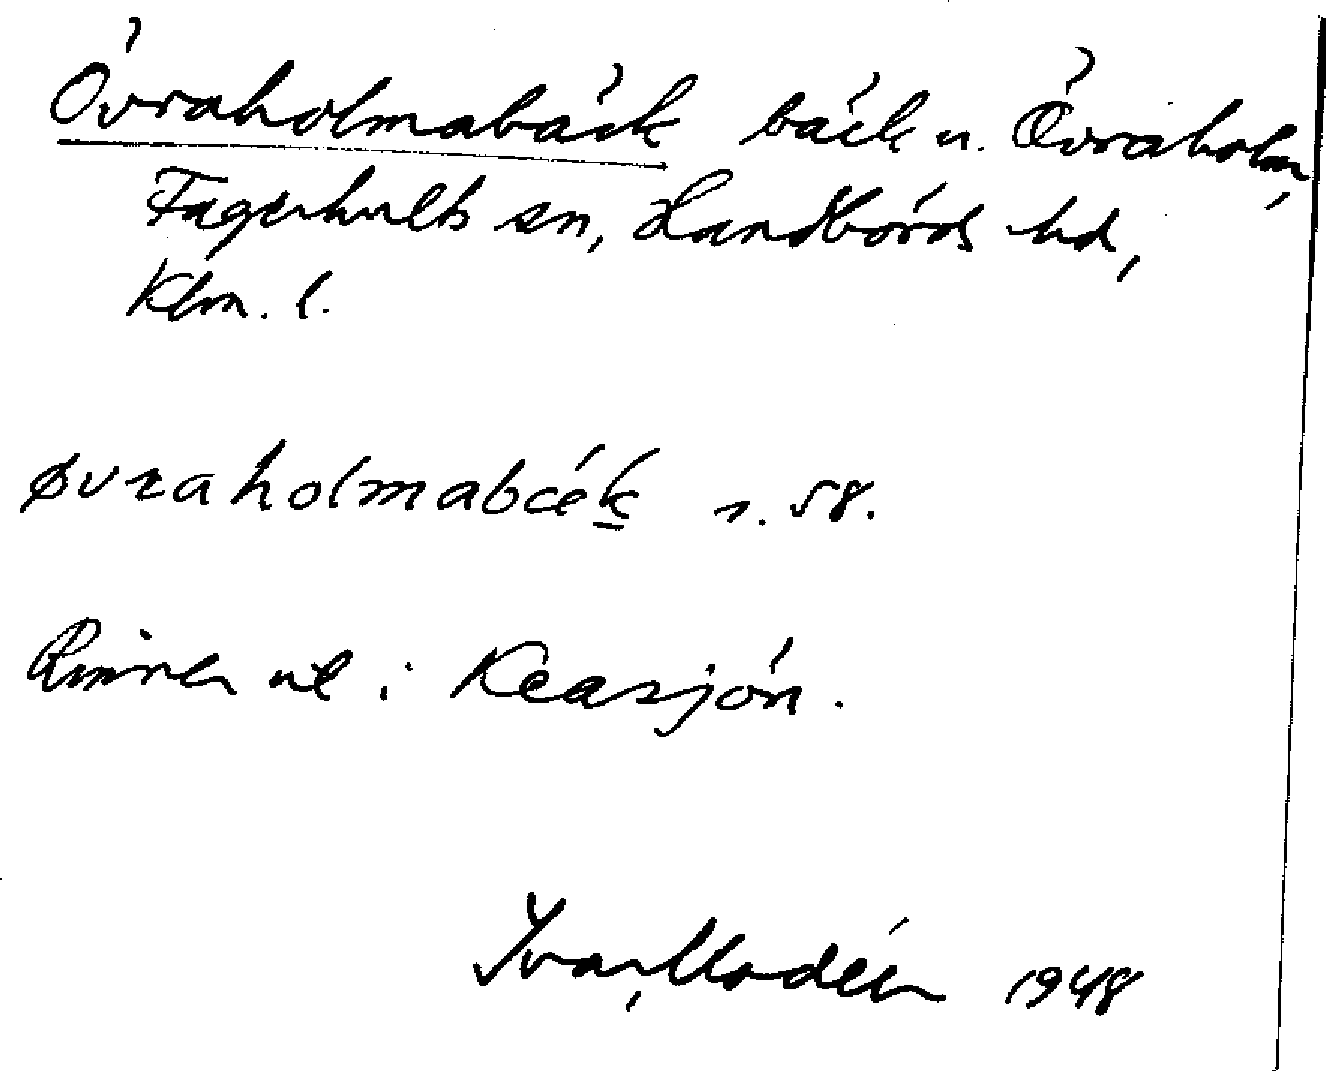 Övraholmabäck bäck u. Övraholm,
Fagerhults sn, Handbörds hd,
Klm. l.
øvraholmabæk s. 58.
Rinner ut i Kleasjön.
Ivar Modéer 1948